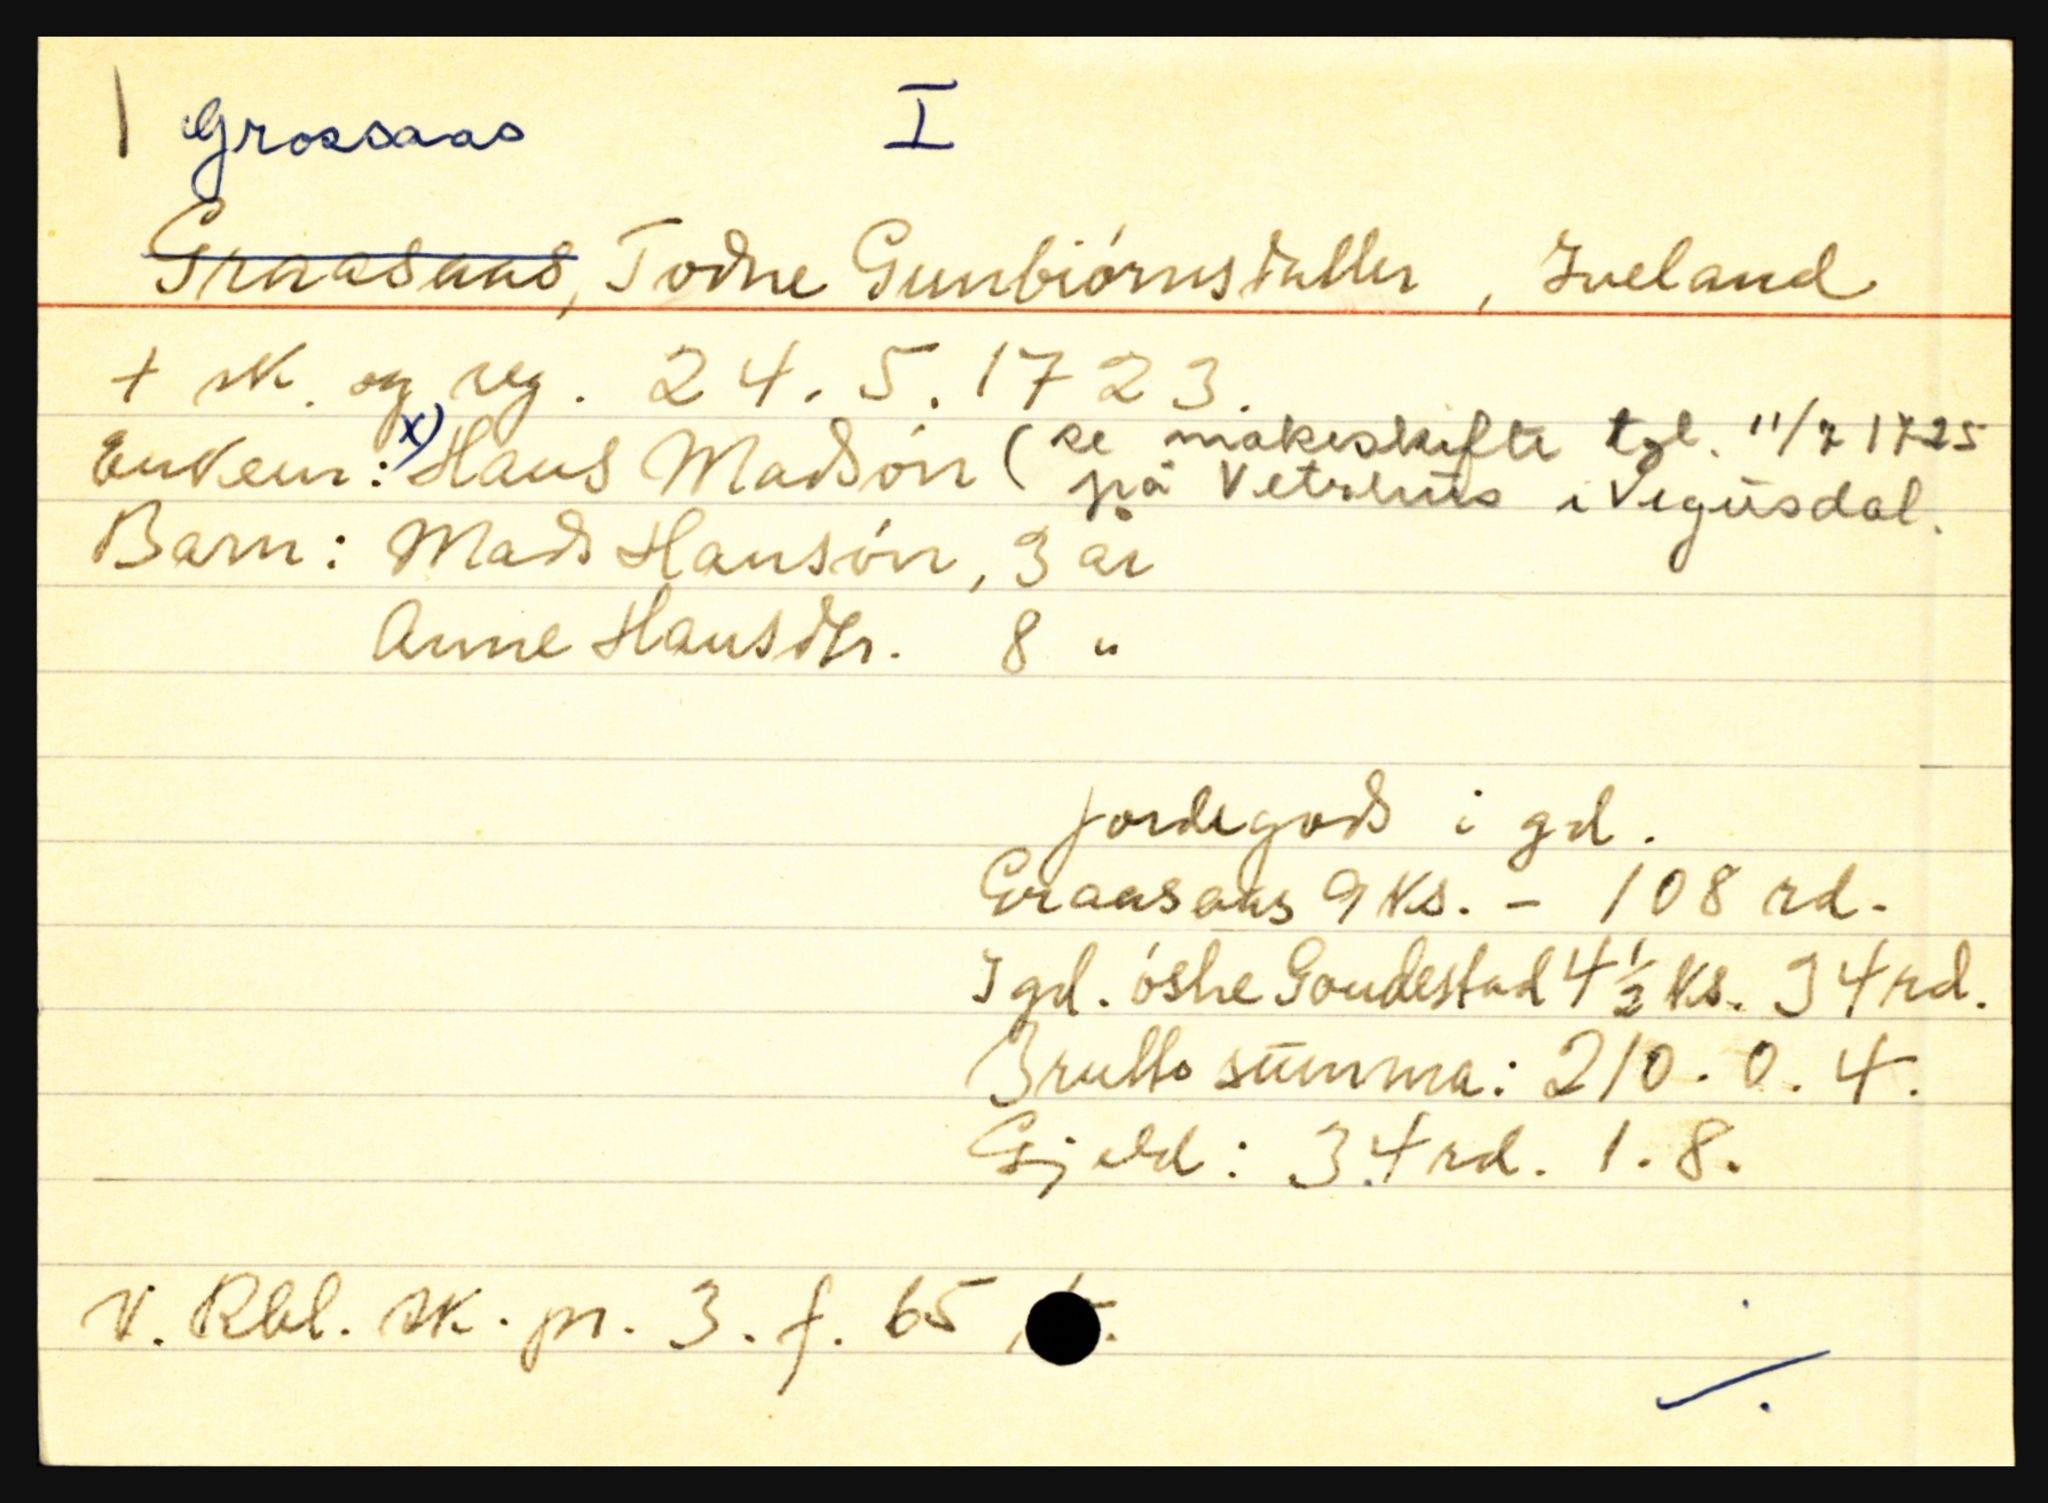 Grossaas I
Graasaas, Todne Gunbiörnsdatter, Iveland
+ sk. og reg. 24. 5. 1723.
Enkem: x) Hans Madsön (se makeskifte tgl. 11/7 1725
på Vetrhus i Vegusdal.
Barn: Mads Hansön, 3 år
Anne Hansdtr. 8 "
jordegods i gd.
Graasaas 9 ks. - 108 rd.
I gd. östre Goudestad 4 1/2 ks. 34 rd.
Brutto summa: 210. 0. 4.
Gjeld: 34 rd. 1. 8.
V. Rbl. sk. pr. 3. f. 65